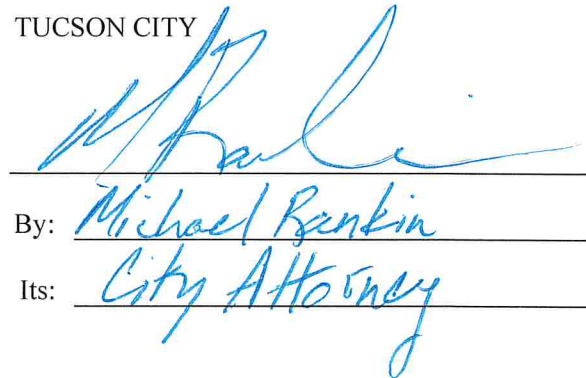 TUCSON CITY
By: Michael Rankin
Its: City Attorney